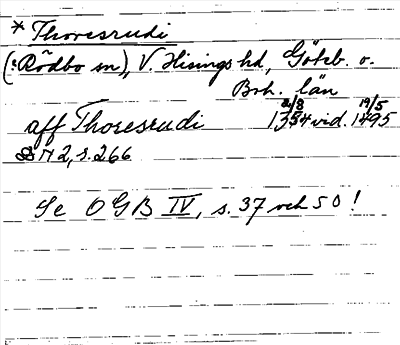 * Thoresrudi
(: Rödbo sn), V. Hisings hd, Göteb. o.
Boh. län
aff Thoresrudi 1354 2/8 vid. 1495 19/5
SMR 2, s. 266
Se OGB IV, s. 37 och 50!